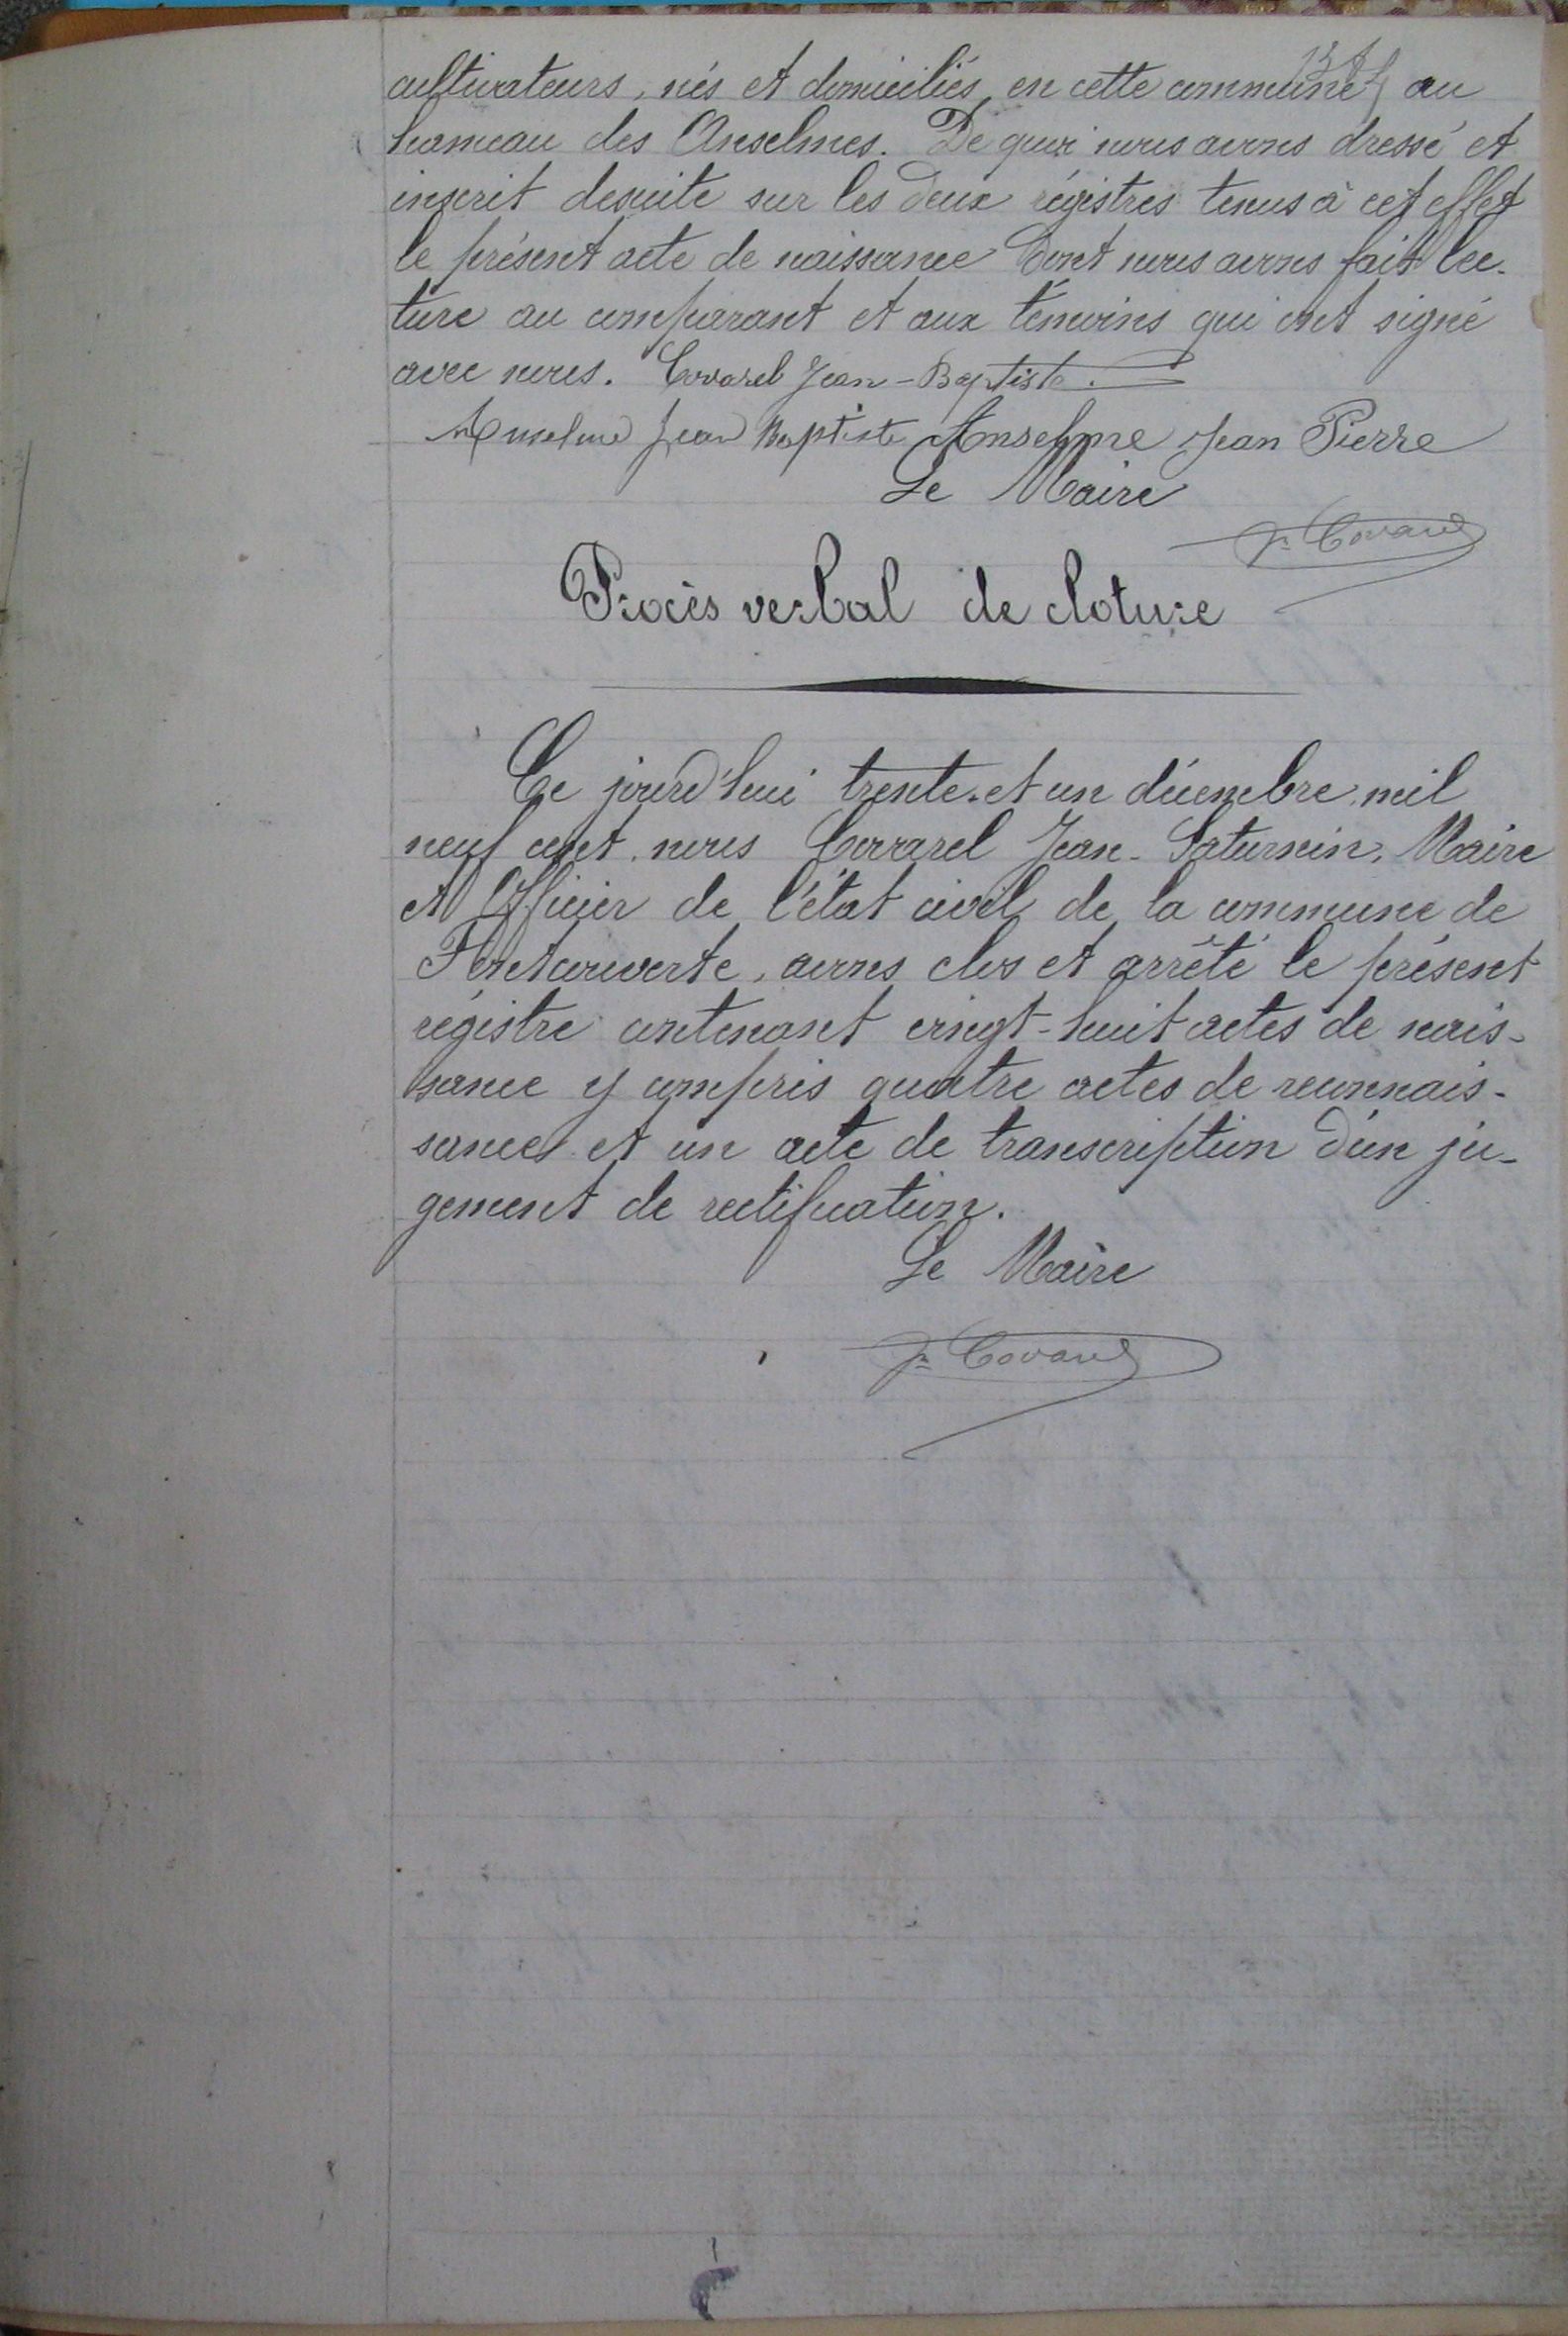 cultivateurs, nés et domiciliés en cette commune au
hameau des Anselmes. De quoi nous avons dressé et
inscrit desuite sur les deux régistres tenus à cet effet
le présent acte de naissance dont nous avons fait lec-
ture au comparant et aux témoins qui ont signé
avec nous. Covarel Jean-Baptiste.
Anselme Jean Baptiste Anselme Jean Pierre
Le Maire
Jn Covarel
Procès verbal de cloture
Ce jourd'hui trente-et un décembre mil
neuf cent, nous Covarel Jean-Saturnin, Maire
et Officier de l'état civil de la commune de
Fontcouverte, avons clos et arrêté le présent
régistre contenant vingt-huit actes de nais-
sance y compris quatre actes de reconnais-
sance et un acte de transcription d'un ju-
gement de rectification.
Le Maire
Jn Covarel